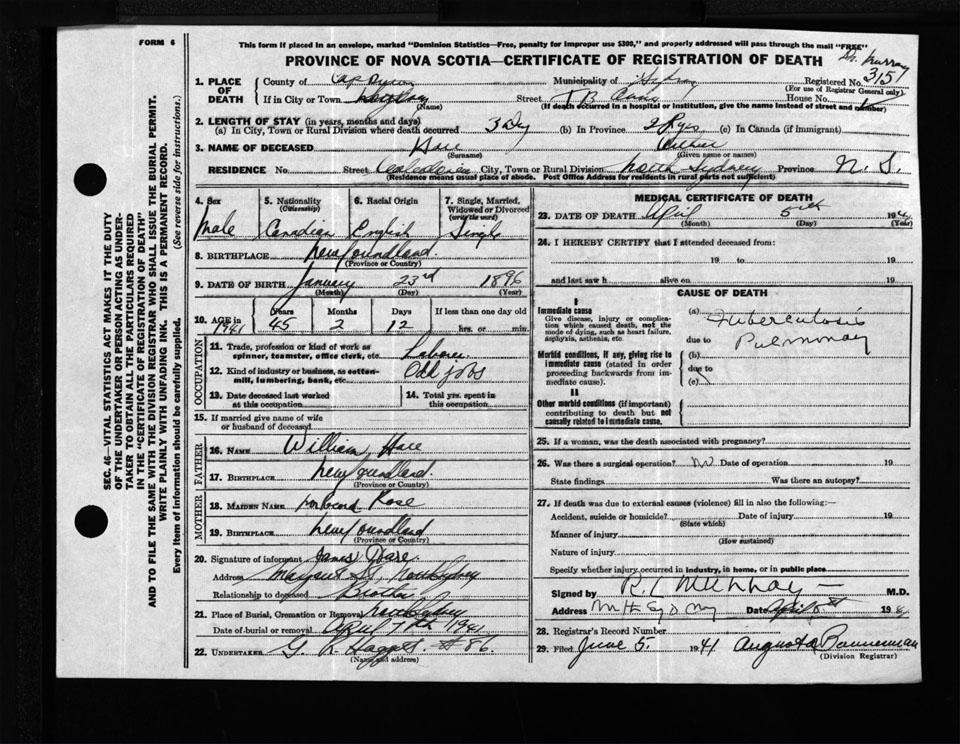 FORM 6
This form if placed in an envelope, marked "Dominion Statistics—Free, penalty for improper use $300," and properly addressed will pass through the mail "FREE"
PROVINCE OF NOVA SCOTIA—CERTIFICATE OF REGISTRATION OF DEATH
Dr. Murray
1. PLACE OF DEATH
County of Cap Breton
Municipality of
Registered No. 315
(For use of Registrar General only)
If in City or Town
(Name)
Street T B
House No.
(If death occurred in a hospital or institution, give the name instead of street and number)
2. LENGTH OF STAY (in years, months and days)
(a) In City, Town or Rural Division where death occurred 3 Dy (b) In Province (c) In Canada (if immigrant)
3. NAME OF DECEASED
(Surname)
(Given name or names)
RESIDENCE No. Street City, Town or Rural Division North Sydney Province N. S.
(Residence means usual place of abode. Post Office Address for residents in rural parts not sufficient)
4. Sex Male
5. Nationality (Citizenship) Canadian
6. Racial Origin English
7. Single, Married, Widowed or Divorced (write the word) Single
8. BIRTHPLACE Newfoundland.
(Province or Country)
9. DATE OF BIRTH January 23rd 1896
(Month) (Day) (Year)
10. AGE in 1941
Years 45
Months 2
Days 12
If less than one day old
hrs. or min.
OCCUPATION
11. Trade, profession or kind of work as spinner, teamster, office clerk, etc. Laborer
12. Kind of industry or business, as cotton-mill, lumbering, bank, etc. Odd jobs
13. Date deceased last worked at this occupation
14. Total yrs. spent in this occupation
15. If married give name of wife or husband of deceased
FATHER
16. NAME William
17. BIRTHPLACE Newfoundland.
(Province or Country)
MOTHER
18. MAIDEN NAME Rose
19. BIRTHPLACE Newfoundland
(Province or Country)
20. Signature of informant James
Address North Sydney
Relationship to deceased Brother
21. Place of Burial, Cremation or Removal North Sydney
Date of burial or removal April 7th 1941
22. UNDERTAKER G. #86.
(Name and address)
MEDICAL CERTIFICATE OF DEATH
23. DATE OF DEATH April 5th 194
(Month) (Day) (Year)
24. I HEREBY CERTIFY that I attended deceased from:
19 to 19
and last saw h alive on 19
CAUSE OF DEATH
I
Immediate cause
Give disease, injury or complication which caused death, not the mode of dying, such as heart failure, asphyxia, asthenia, etc.
Morbid conditions, if any, giving rise to immediate cause (stated in order proceeding backwards from immediate cause).
II
Other morbid conditions (if important) contributing to death but not causally related to immediate cause.
(a) Tuberculosis
due to Pulmonary
(b)
due to
(c)
25. If a woman, was the death associated with pregnancy?
26. Was there a surgical operation? No Date of operation 19
State findings Was there an autopsy?
27. If death was due to external causes (violence) fill in also the following:—
Accident, suicide or homicide? Date of injury 19
(State which)
Manner of injury
(How sustained)
Nature of injury
Specify whether injury occurred in industry, in home, or in public place
Signed by M.D.
Address Nth Sydney Date April 19
28. Registrar's Record Number
29. Filed June 5. 1941 Augusta Bannerman
(Division Registrar)
SEC. 46—VITAL STATISTICS ACT MAKES IT THE DUTY
OF THE UNDERTAKER OR PERSON ACTING AS UNDER-
TAKER TO OBTAIN ALL THE PARTICULARS REQUIRED
IN THE "CERTIFICATE OF REGISTRATION OF DEATH"
AND TO FILE THE SAME WITH THE DIVISION REGISTRAR WHO SHALL ISSUE THE BURIAL PERMIT.
WRITE PLAINLY WITH UNFADING INK. THIS IS A PERMANENT RECORD.
Every item of information should be carefully supplied. (See reverse side for instructions.)